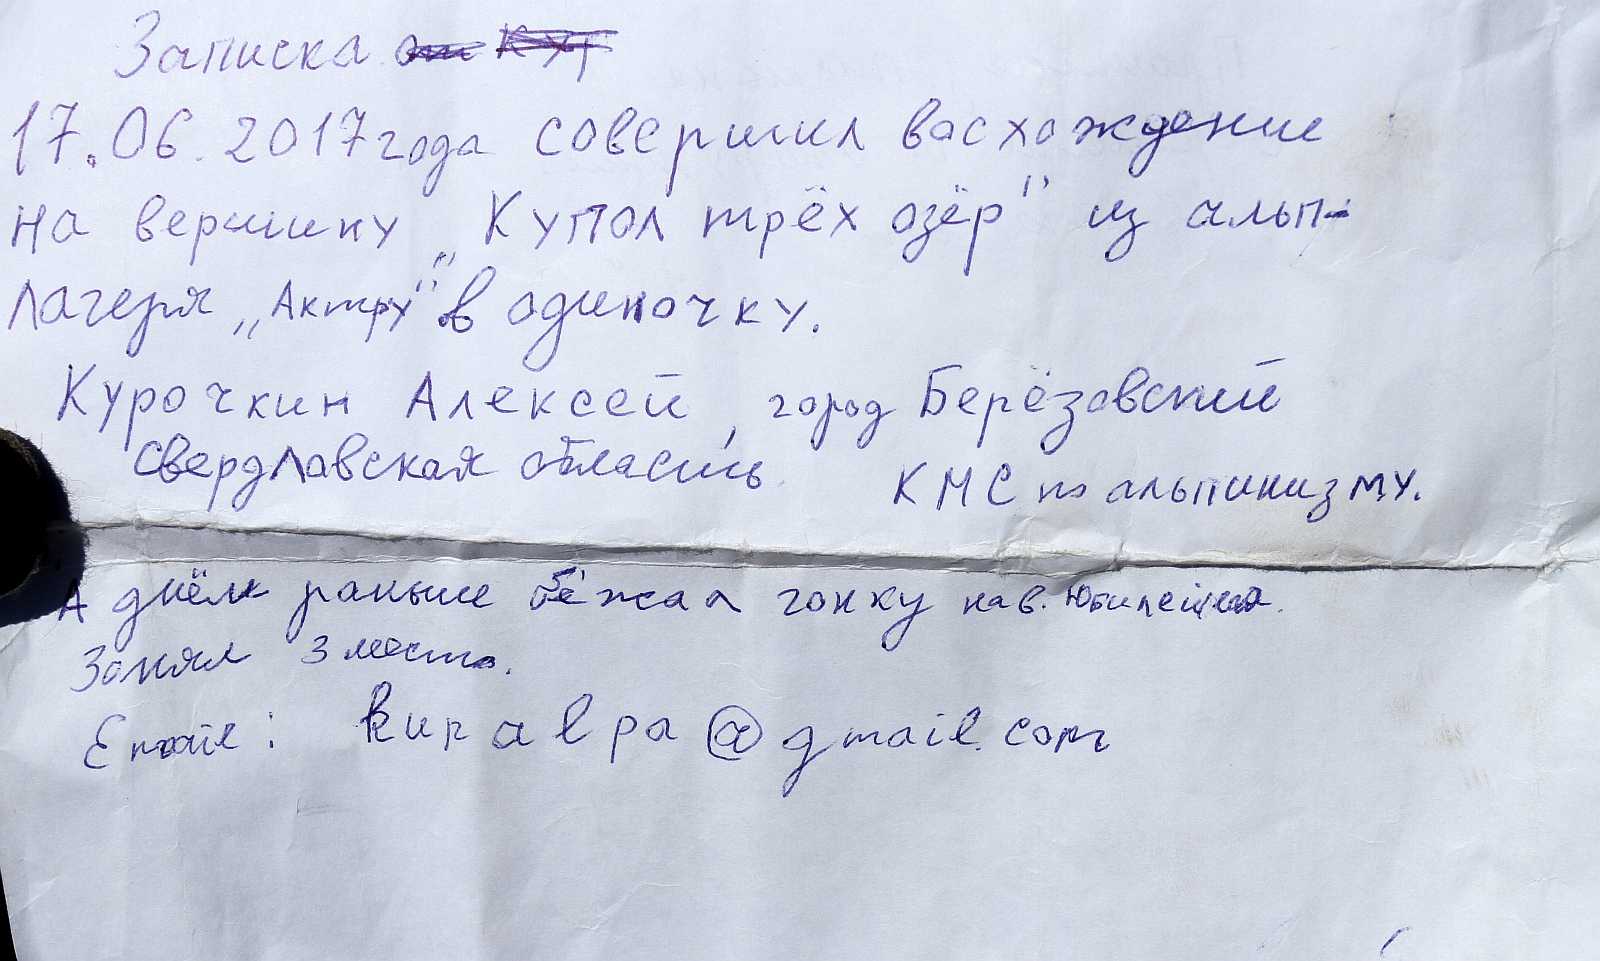 Записка от КУТ
17.06.2017 года совершил васхождение
на вершину „Купол трёх озёр" из альп-
лагеря „Актру" в одиночку.
Курочкин Алексей, город Берёзовский
свердлавская область. КМС по альпинизму.
А днём раньше бежал гонку на в. Юбилейная.
Занял 3 место.
Email: kupalpa@gmail.com